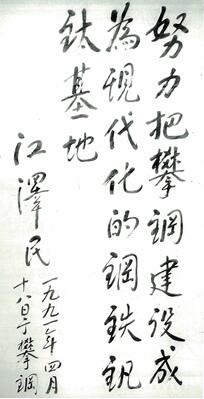 努力把攀鋼建设成
為現代化的鋼鉄釩
鈦基地
江澤民
一九九一年四月
十八日于攀鋼